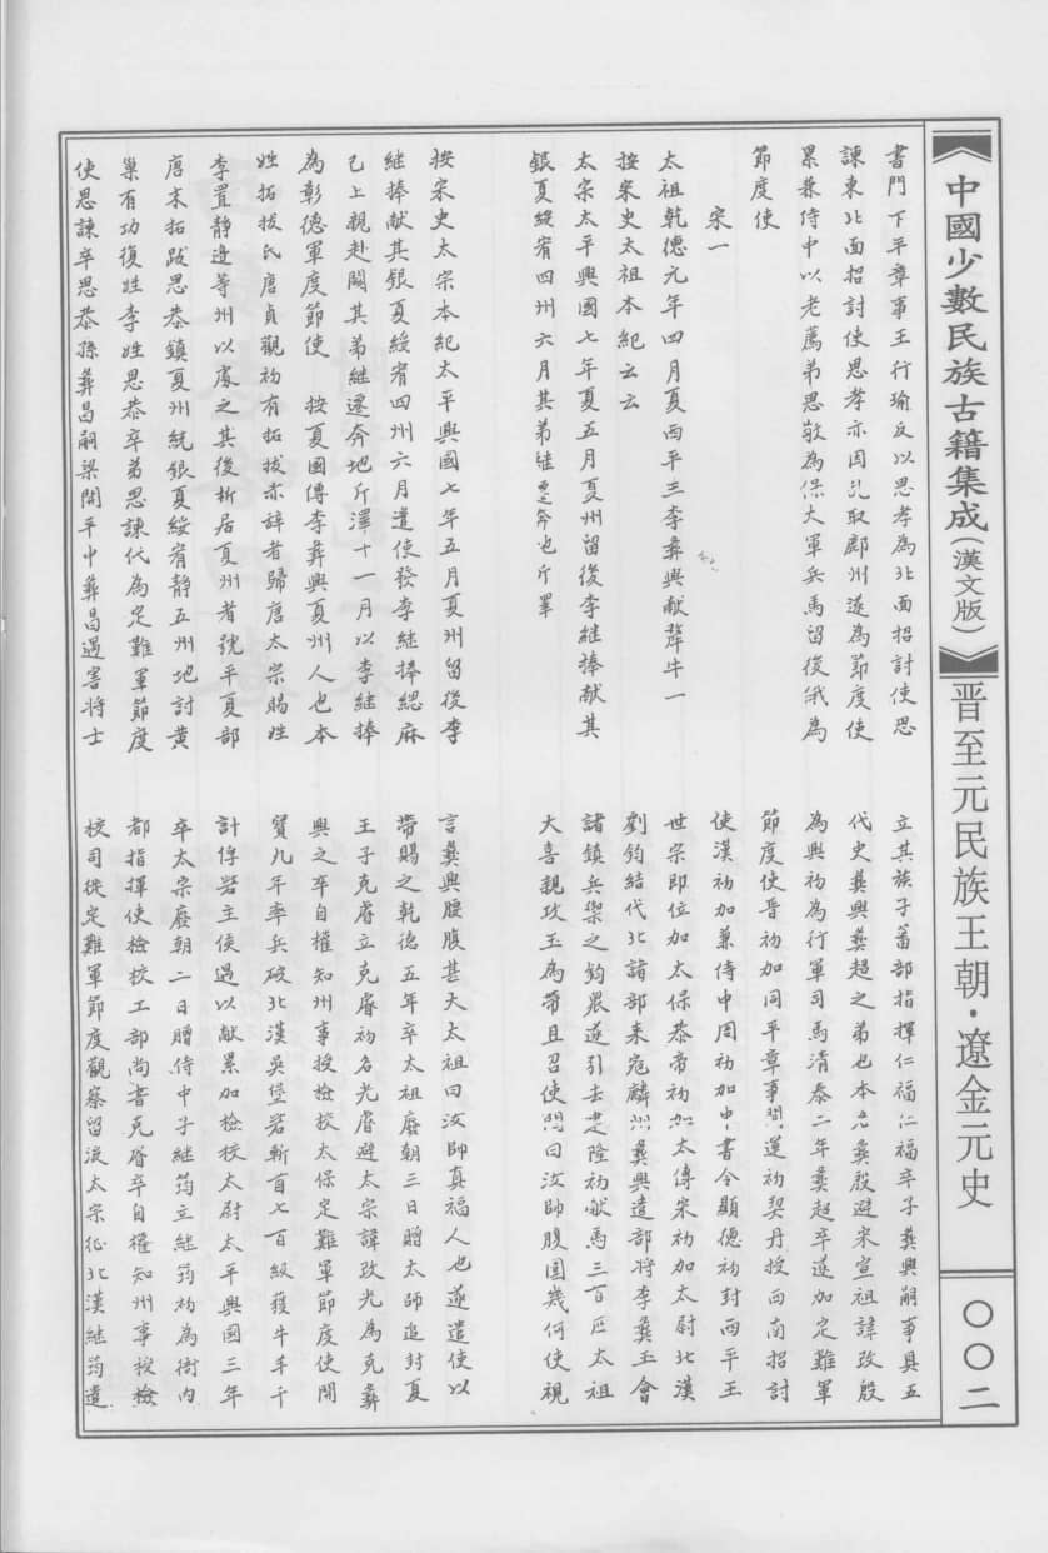 《中國少數民族古籍集成（漢文版）》晋至元民族王朝·遼金元史
〇〇二
書門下平章事王行瑜反以思孝為北面招討使思
諫東北面招討使思孝亦因亂取鄜州遂為節度使
累兼侍中以老薦弟思敬為保大軍兵馬留後俄為
節度使
宋一
太祖乾德元年四月夏西平王李彝興献犛牛一
按宋史太祖本紀云云
太宗太平興國七年夏五月夏州留後李継捧献其
銀夏綏宥四州六月其弟継遷奔地斤澤
按宋史太宗本紀太平興國七年五月夏州留後李
継捧献其銀夏綏宥四州六月遣使發李継捧緦麻
已上親赴闕其弟継遷奔地斤澤十一月以李継捧
為彰德軍度節使　按夏國傳李彝興夏州人也本
姓拓拔氏唐貞觀初有拓拔赤辞者歸唐太宗賜姓
李置靜邊等州以處之其後析居夏州者號平夏部
唐末拓跋思恭鎮夏州統銀夏綏宥靜五州地討黄
巢有功復姓李姓思恭卒弟思諫代為定難軍節度
使思諫卒思恭孫彝昌嗣梁開平中彝昌遇害將士
立其族子蕃部指揮仁福仁福卒子彝興嗣事具五
代史彝興彝超之弟也本名彝殷避宋宣祖諱改殷
為興初為行軍司馬清泰二年彝超卒遂加定難軍
節度使晋初加同平章事開運初契丹授西南招討
使漢初加兼侍中周初加中書令顯德初封西平王
世宗即位加太保恭帝初加太傅宋初加太尉北漢
劉鈞結代北諸部来宼麟州彝興遣部将李彝玉會
諸鎮兵禦之鈞衆遂引去建隆初献馬三百匹太祖
大喜親攻玉為帶且召使問曰汝師腹圍幾何使視
言彝興腰腹甚大太祖曰汝師真福人也遂遣使以
帶賜之乾德五年卒太祖廢朝三日贈太師追封夏
王子克睿立克睿初名光睿避太宗諱改光為克彝
興之卒自權知州事授檢校太保定難軍節度使開
寳九年率兵破北漢吳堡砦斬首七百級獲牛羊千
計俘砦主侯遇以献累加檢校太尉太平興國三年
卒太宗廢朝二日贈侍中子継筠立継筠初為衙内
都指揮使檢校工部尚書克睿卒自權知州事授檢
校司徒定難軍節度觀察留後太宗征北漢継筠遣